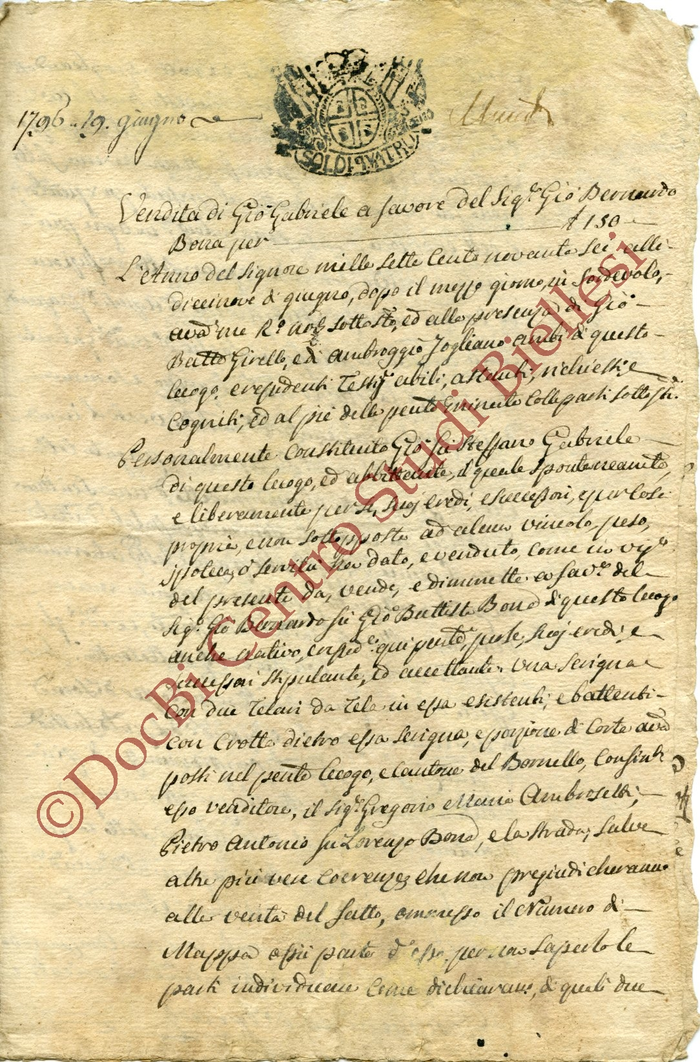 1796. 19. giugno
SOLDI QVATRO
Vendita di Giò Gabriele a favore del Sig.r Giò Bernardo
Bona per £ 150
L'Anno del Signore mille sette Cento novanta sei, alli
diecinove di giugno, dopo il mezzo giorno, in Sordevolo,
avanti me sottosto, ed alla presenza di Giò
Batta Girello, ed Ambroggio Fogliano ambi di questo
luogo, e residenti Testj abili, astanti, richiesti, e
Cogniti, ed al piè della pente minuta colle parti sottosti.
Personalmente Constituito Giò fu Steffano Gabriele
di questo luogo, ed abbittante, il quale spontaneamente,
e liberamente per se, suoj eredi, e successori, e per Cosa
propria, e non sottoposta ad alcun vincolo, peso,
ippoteca, ò servitù ha dato, e venduto, come in vigr
del presente dà, vende, e dimmette a favr del
Sigr Giò Bernardo fu Giò Battista Bona di questo luogo
anche nativo, qui pente per se, suoj eredi, e
successori stipulante, ed accettante una
con due Telari da Tela in essa esistenti, e battenti
con Crotta dietro essa e porzione di Corte avanti
posti nel pente luogo, e cantone del Bornello, Consorti
esso venditore, il Sigr Gregorio Maria Ambrosetti,
Pietro Antonio fu Lorenzo Bona, e la strada, salve
altre più vere Coerenze, che non pregiudicheranno
alla verità del fatto, ommesso il Numero di
Mappa ossii parte d'essa, per non saperlo le
parti individuare Come dichiarano, di quali due
©DocBi Centro Studi Biellesi